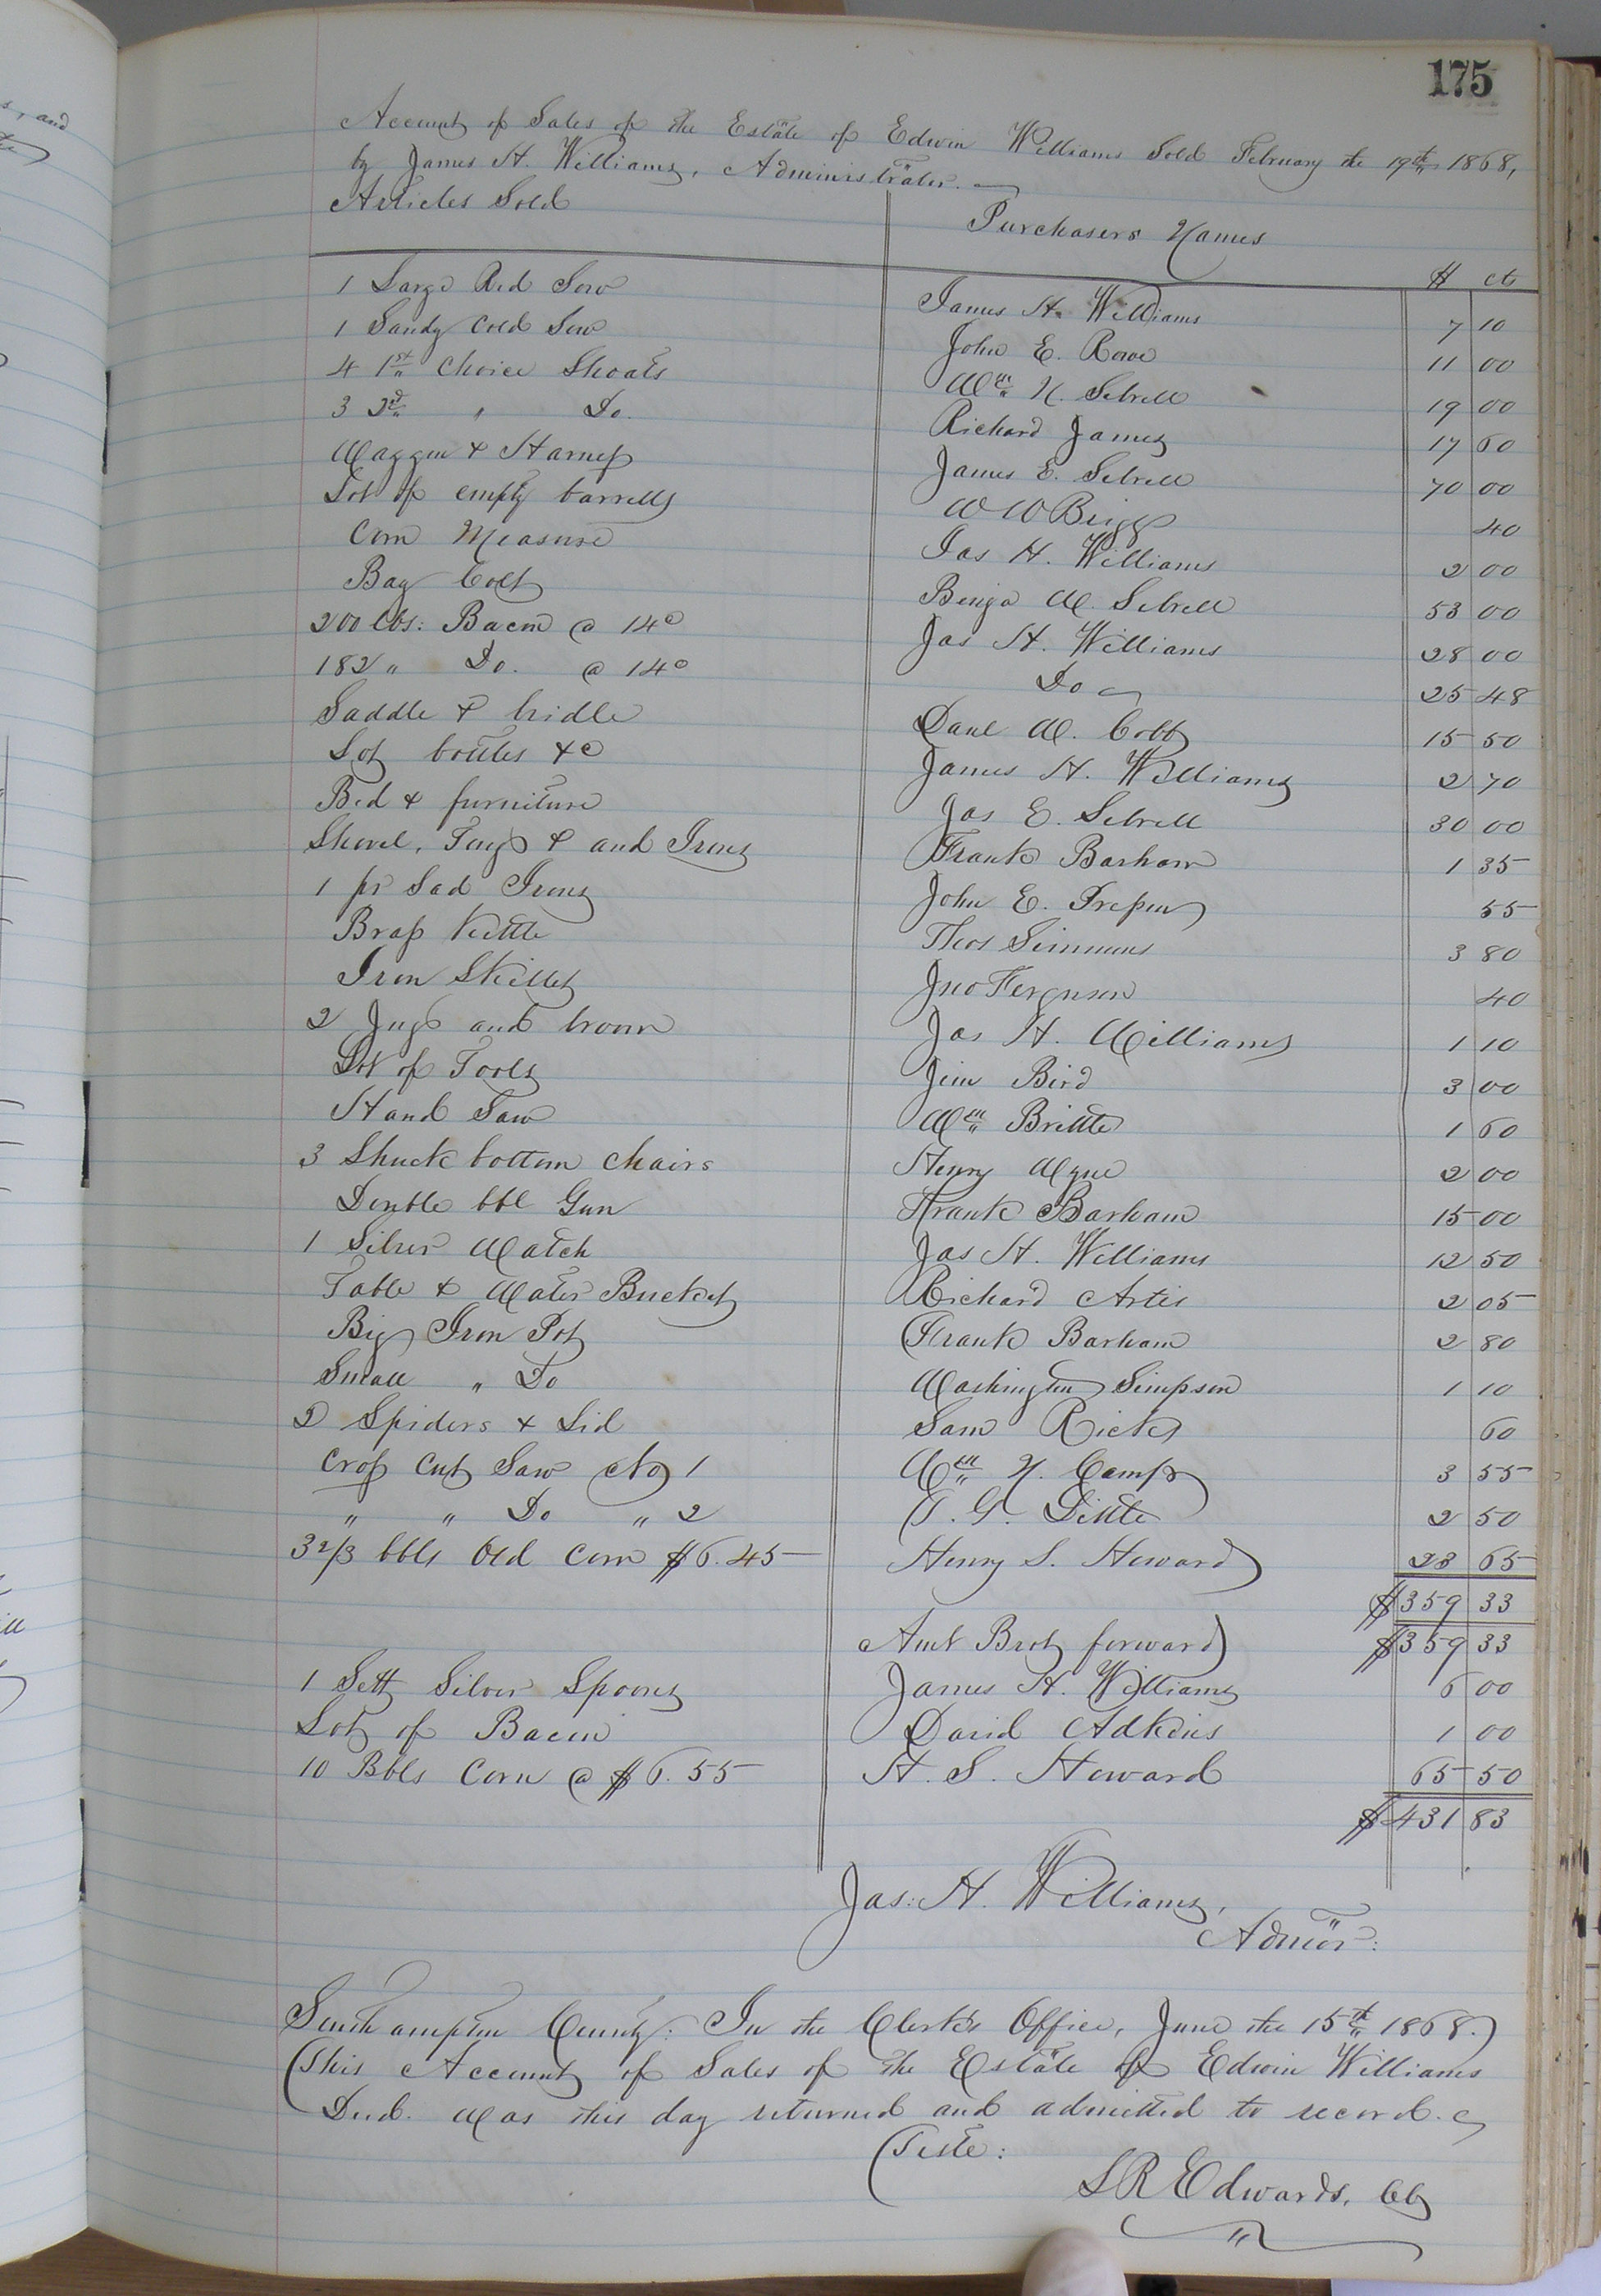 175
Account of Sales of the Estate of Edwin Williams Sold February the 19th 1868,
by James H. Williams, Administrator.
Articles Sold Purchasers Names
$ cts
1 Large Red Sow James H. Williams 7 10
1 Sandy Cold Sow John E. Rowe 11 00
4 1st Choice Shoats Wm N. Sebrell 19 00
3 2d " Do. Richard James 17 60
Waggon & Harness James E. Sebrell 70 00
Lot of empty barrells W W Briggs 40
Corn Measure Jas H. Williams 2 00
Bay Colt Benja W. Sebrell 53 00
200 lbs: Bacon @ 14c Jas H. Williams 28 00
182 " Do. @ 14c Do 25 48
Saddle & bridle Danl W. Cobb 15 50
Lot bottles &c James H. Williams 2 70
Bed & furniture Jas E. Sebrell 30 00
Shovel, Tongs & and Irons Frank Barham 1 35
1 pr Sad Irons John E. 55
Brass Kettle Theos Simmons 3 80
Iron Skillet Jno Ferguson 40
2 Jugs and broom Jas H. Williams 1 10
Lot of Tools Jim Bird 3 00
Hand Saw Wm Brittle 1 60
3 Shuck bottom chairs Henry Wyne 2 00
Double bbl Gun Frank Barham 15 00
1 Silver Watch Jas H. Williams 12 50
Table & Water Bucket Richard Artis 2 05
Big Iron Pot Frank Barham 2 80
Small " Do Washington Simpson 1 10
2 Spiders & Lid Sam Ricks 60
Cross Cut Saw No 1 Wm N. Camp 3 55
" " Do " 2 T. G. Little 2 50
3 2/3 bbls Old Corn $6.45 Henry S. Howard 23 65
$359 33
Amt Brot forward $359 33
1 Sett Silver Spoons James H. Williams 6 00
Lot of Bacon David Adkins 1 00
10 Bbls Corn @ $6.55 H. S. Howard 65 50
$431 83
Jas: H. Williams,
Admor:
Southampton County: In the Clerk's Office, June the 15th 1868.
This Account of Sales of the Estate of Edwin Williams
Decd. Was this day returned and admitted to record.
Teste:
L R Edwards, CC